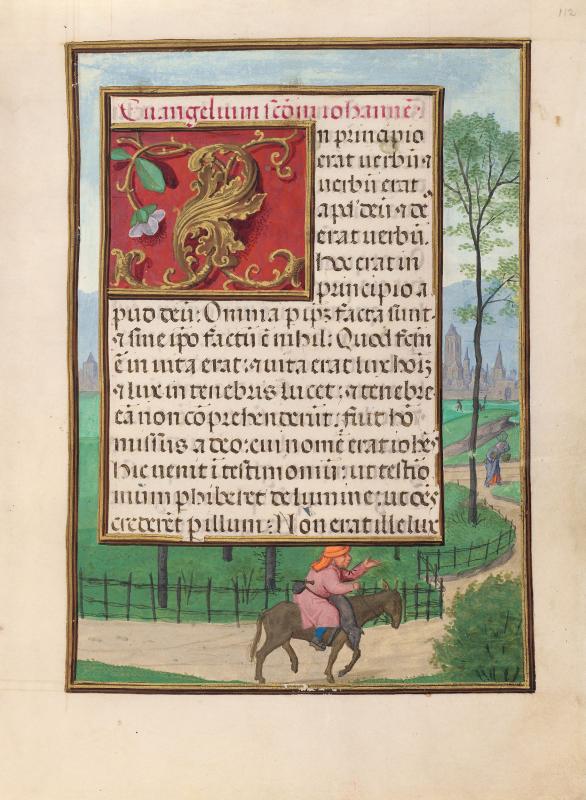 112
Euangelium scd̄m iohannē
In principio
erat uerbū ⁊
uerbū erat
apd' deū ⁊ de⁹
erat uerbū.
Hoc erat in
principio a
pud deū: Omnia p ipȝ facta sunt
⁊ sine ip̄o factū ē nihil: Quod fcm̄
ē in ipa uita erat: ⁊ uita erat lux hoīȝ
⁊ lux in tenebris lucet: ⁊ tenebre
eā non cōprehenderūt: fuit ho
missus a deo: cui nomē erat iohēs
Hic uenit ī testimoniū: ut testio
nium phiberet de lumine: ut oēs
crederēt p illum: Non erat ille lux